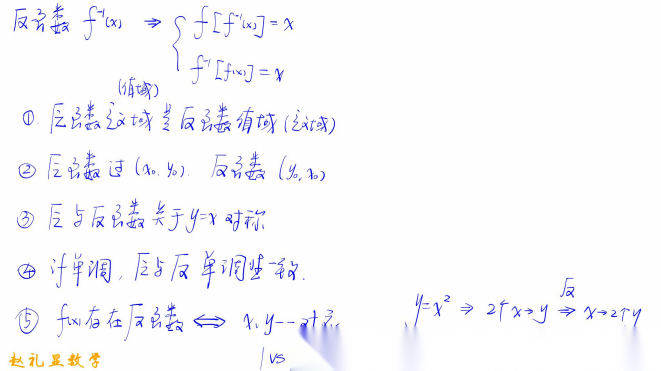 反函数 f⁻¹(x) ⇒ { f[f⁻¹(x)]=x
f⁻¹[f(x)]=x
(值域)
①. 原函数定义域是反函数值域(定义域)
② 原函数过(x₀,y₀). 反函数(y₀,x₀)
③ 原与反函数关于y=x对称
④ 若单调,原与反单调性一致.
⑤ f(x)存在反函数 ⇔ x,y一一对应
y=x² ⇒ 2个x→y ⇒ x→2个y
反
1 vs
赵礼显数学